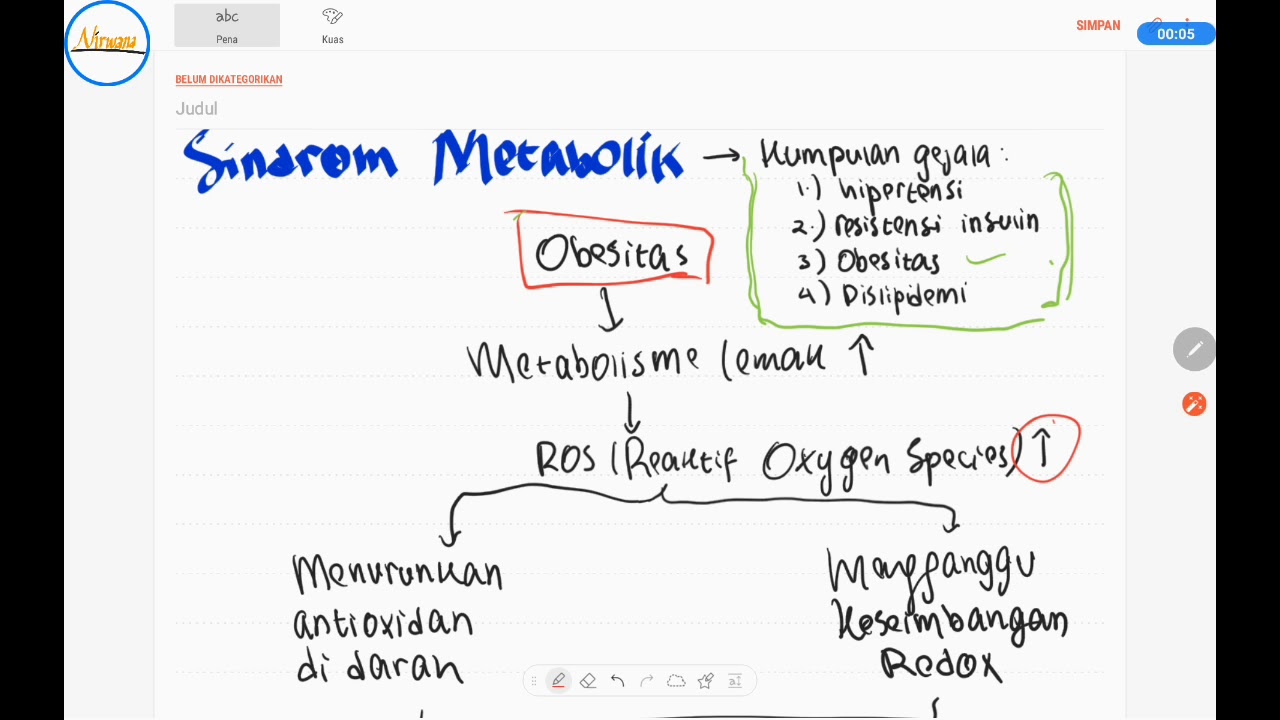 Nirwana
abc
Pena
Kuas
SIMPAN
00:05
BELUM DIKATEGORIKAN
Judul
Sindrom Metabolik → Kumpulan gejala :
1.) hipertensi
2.) resistensi insulin
3) Obesitas
4) Dislipidemi
Obesitas
Metabolisme lemak ↑
ROS (Reaktif Oxygen Species) ↑
Menurunkan
antioxidan
di darah
Mengganggu
Keseimbangan
Redox